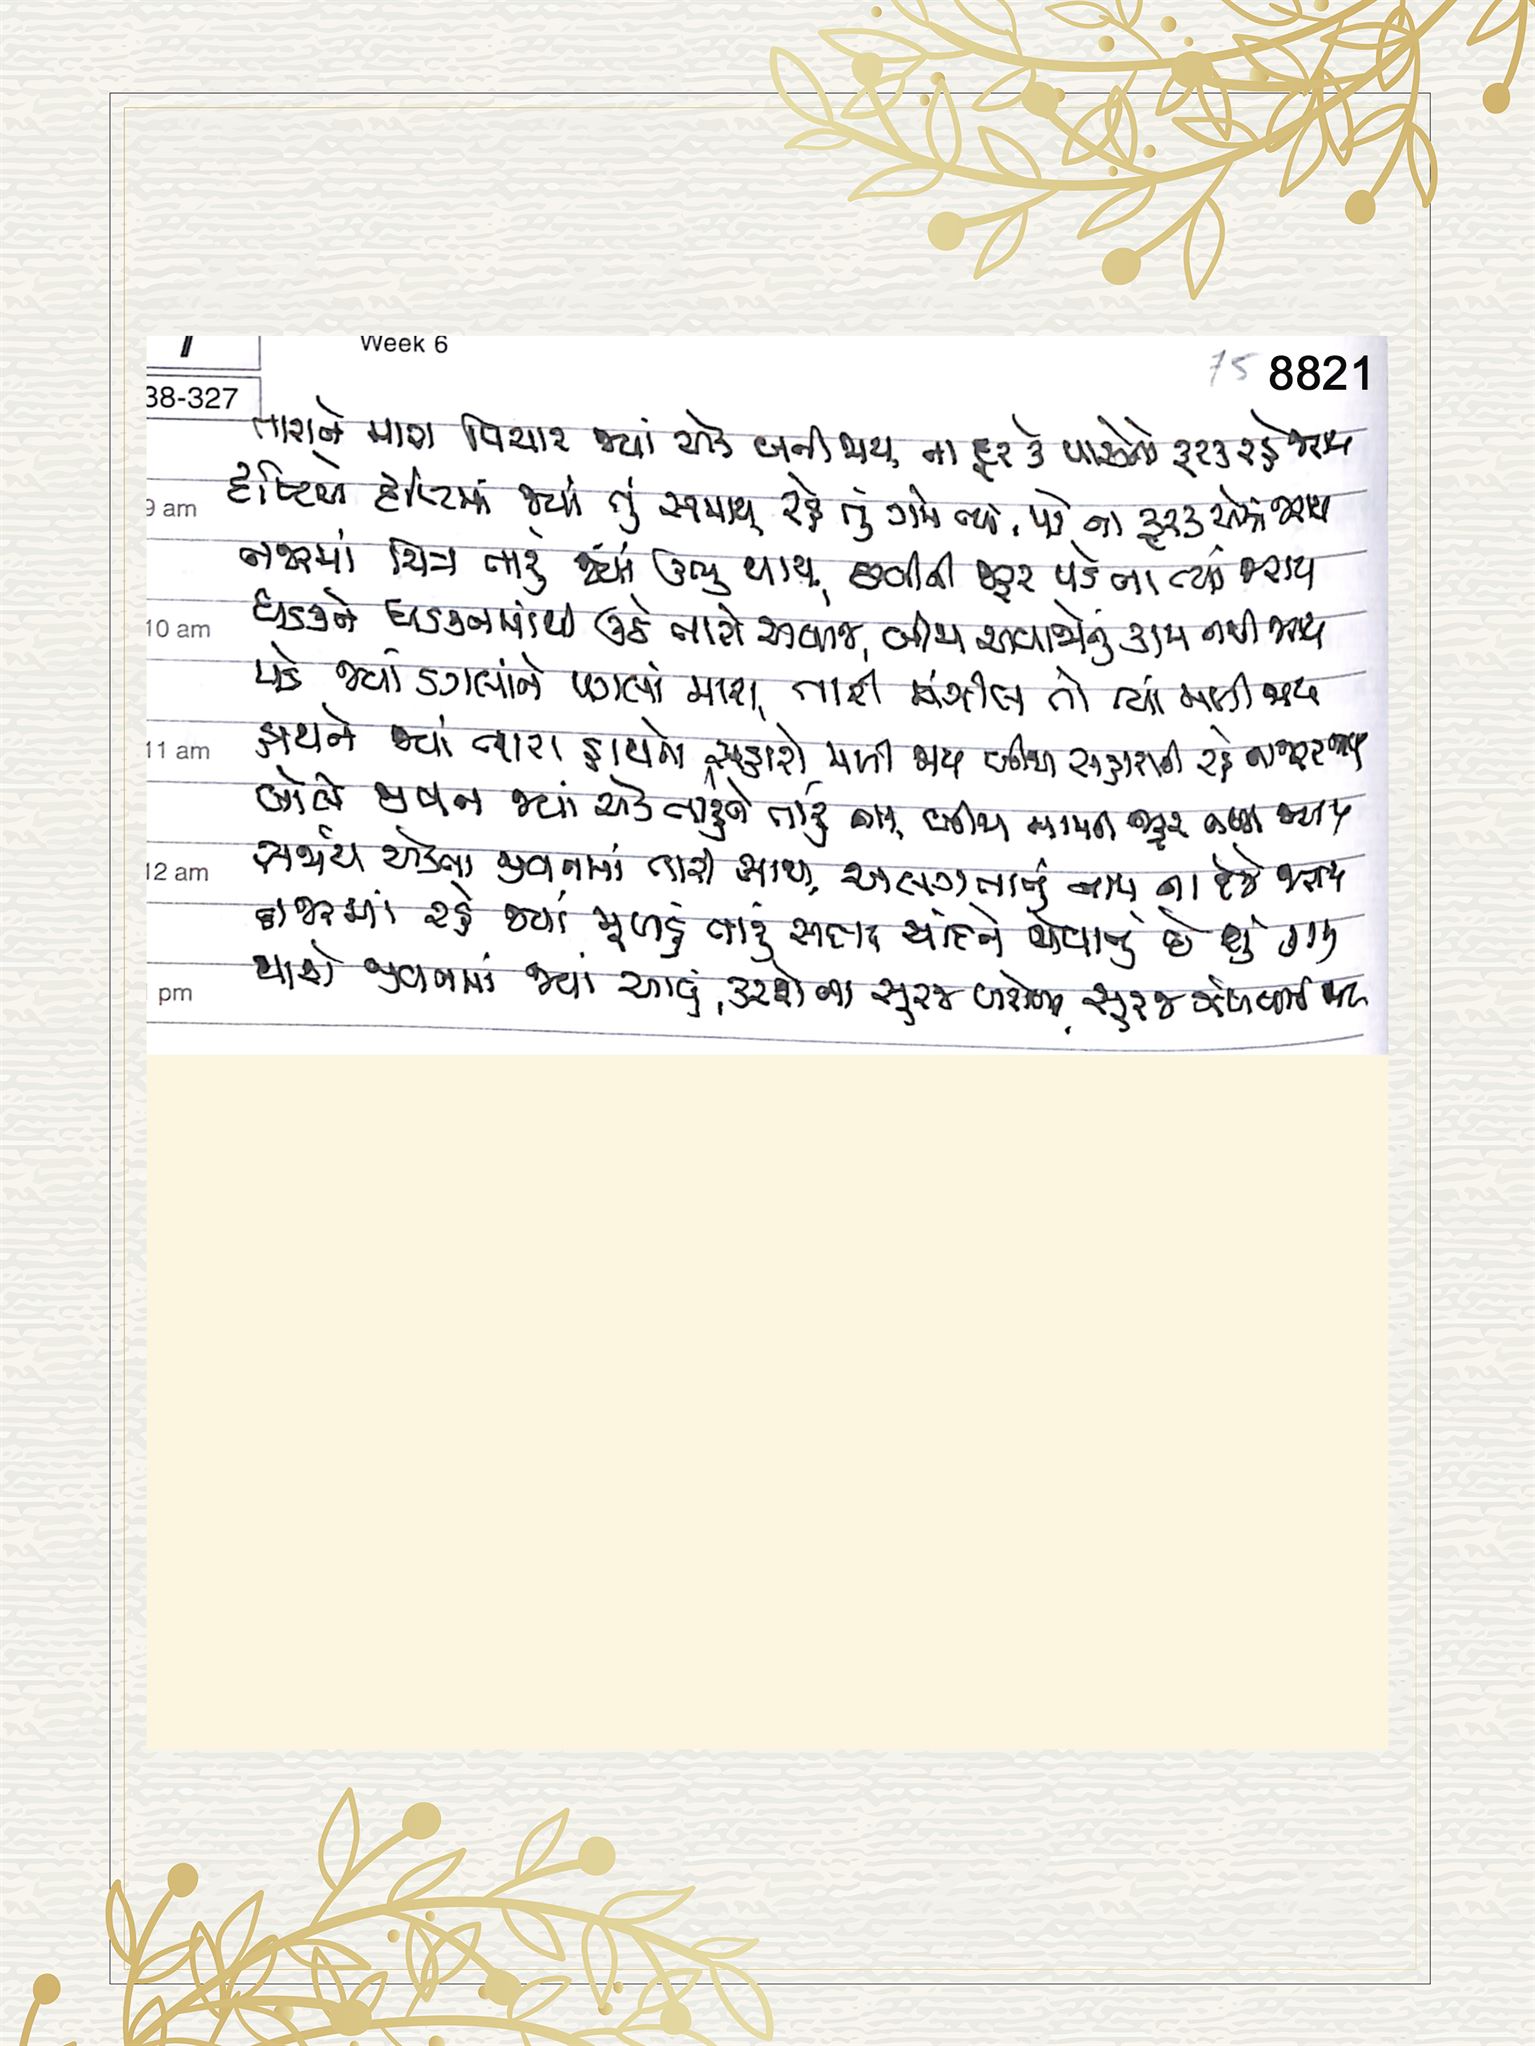 Week 6
75 8821
38-327
તારાને મારા વિચાર જ્યાં એક બની જાય, ના દૂર કે પાસેનો ફરક રહે જરાય
9 am દૃષ્ટિએ દૃષ્ટિમાં જ્યાં તું સમાય, રહે તું ગમે ત્યાં, પડે ના ફરક એમાં જરાય
નજરમાં ચિત્ર તારું જ્યાં ઊભું થાય, છબીની જરૂર પડે ના ત્યાં જરાય
10 am ધડકને ધડકનમાંથી ઉઠે તારો અવાજ, બીજા અવાજોનું કામ નથી જરાય
પડે જ્યાં ડગલાંને પગલાં મારા, તારી મંઝીલ તો ત્યાં મળી જાય
11 am હાથને જ્યાં તારા હાથનો સહારો મળી જાય બીજા સહારાની રહે ના જરૂર જરાય
બોલે જીવન જ્યાં એક તારુંને તારું નામ, બીજા નામની જરૂર નથી જરાય
12 am સર્જાય એકતા જીવનમાં તારી સાથ, અલગતાનું નામ ના રહે જરાય
નજરમાં રહે જ્યાં મુખડું તારું સદાય ચાંદને જોવાનું છે શું કામ
pm થાશે જીવનમાં જ્યાં આવું, કરશે ના સૂરજ, સૂરજ